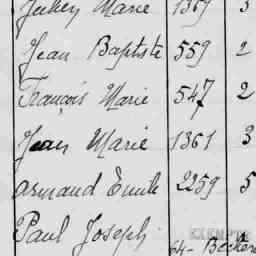 Marie 1369 3
Jean Baptiste 559 2
François Marie 547 2
Jean Marie 1361 3
Armand Emile 2259 5
Paul Joseph 64-